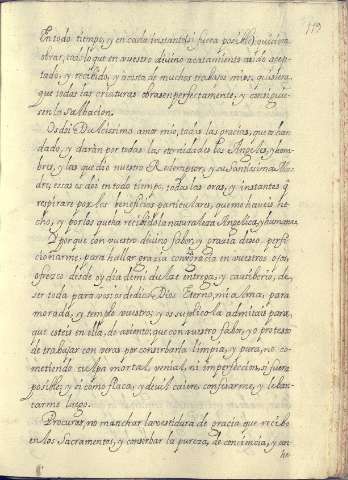 119
En todo tiempo, y en cada instante (si fuera posible) quisiera
obrar, todo lo que en vuestro divino acatamiento ha sido acep-
tado, y recibido, y a costa de muchos trabajos mios, quisiera
que todas las criaturas obrasen perfectamente, y consiguie-
sen la salbacion.
Os doi Dulcissimo amor mio, todas las gracias, que os han
dado, y darán por todas las eternidades los Angeles, y hom-
bres, y las que dio nuestro Redemptor, y su Santissima Ma-
dre; essas os doi en todo tiempo, todas las oras, y instantes q
respirare por los beneficios particulares, que me haveis he-
cho, y por los que ha recibido la naturaleza Angelica, y humana.
Y porque con vuestro divino fabor, y gracia deseo perfi-
cionarme, para hallar gracia en vuestros ojos,
ofrezco desde oy dia de mi total entrega, y cautiberio, de
ser toda para vos; os dedico Dios Eterno, mi alma, para
morada, y templo vuestro; y os suplico la admitais para
que esteis en ella, de asiento; que con vuestro fabor, yo protesto
de trabajar con veras por conserbarla limpia, y pura, no co-
metiendo culpa mortal, venial, ni imperfeccion, si fuera
posible; y si como flaca, y devil caire, confesarme, y leban-
tarme luego.
Procurar, no manchar la vestidura de gracia que recibo
en los Sacramentos, y conserbar la pureza, de conciencia, y an-